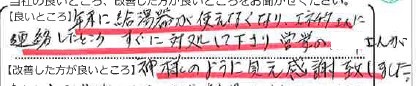 当社の良いところ、改善した方が良いところをお聞かせください。
【良いところ】年末に給湯器が使えなくなり、エネチタさんに
連絡したところ すぐに対処して下さり、営業の さんが
【改善した方が良いところ】神様のように見え感謝致しました